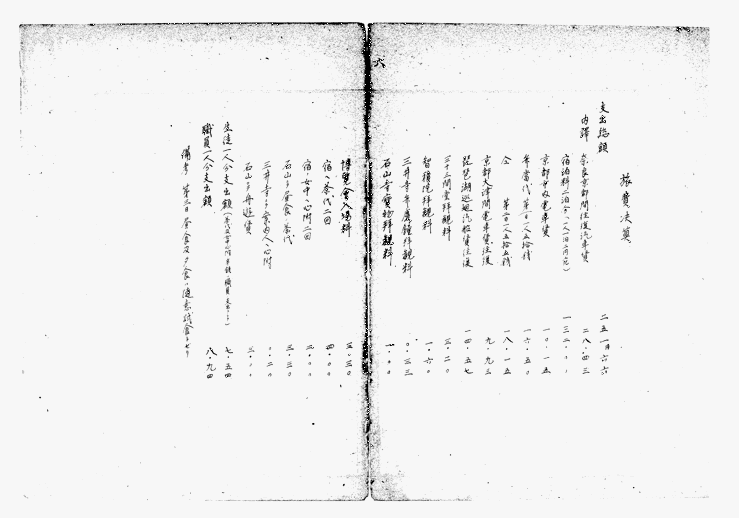 六
旅費決算
支出総額 二五一円六六
内譯 奈良京都間往復汽車賃 二八・四三
宿泊料二泊分(一人一泊二円一元) 一三二・〇〇
京都市内電車賃 一〇・一五
弁當代 第一日一人五拾銭 一六・五〇
仝 第二日一人五拾五銭 一八・一五
京都大津間電車賃往復 九・九三
琵琶湖巡廻汽船賃往復 一四・五七
三十三間堂拝観料 三・二〇
智積院拝観料 一・六〇
三井寺弁慶鐘拝観料 〇・三三
石山寺寳物拝観料 一・〇〇
博覧會入場料 三・三〇
宿ヘ茶代二回 四・〇〇
宿ノ女中ヘ心附二回 三・〇〇
石山ノ昼食ノ茶代 三・三〇
三井寺ノ案内人ヘ心附 〇・二〇
石山ノ舟遊賃 三・〇〇
生徒一人分支出額 七・五四
職員一人分支出額 八・九四
備考 第三日昼食及夕食ハ随意試食ヲナセリ